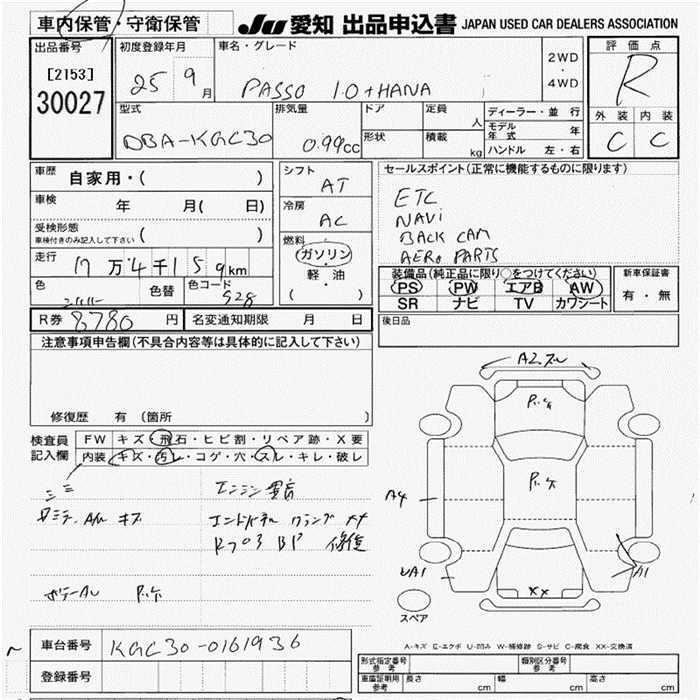 車内保管・守衛保管
JU 愛知 出品申込書 JAPAN USED CAR DEALERS ASSOCIATION
出品番号
[2153]
30027
初度登録年月
25 9月
車名・グレード
PASSO 1.0 + HANA
2WD
・
4WD
評価点
R
外装 内装
C C
型式
DBA-KGC30
排気量
0.99cc
ドア
形状
定員
人
積載
kg
ディーラー・並行
モデル年式 年
ハンドル 左・右
車歴 自家用・( )
車検 年 月( 日)
受検形態
車検付きのみ記入して下さい ( )
走行 17万4千159km
色 シルバー 色替 色コード S28
シフト
AT
冷房
AC
燃料
ガソリン
・
軽油
( )
セールスポイント(正常に機能するものに限ります)
ETC
NAVi
BACK CAM
AERO PARTS
装備品(純正品に限り○をつけてください)
PS PW エアB AW
SR ナビ TV カワシート
新車保証書
有・無
R券 8780円 名変通知期限 月 日
後日品
注意事項申告欄(不具合内容等は具体的に記入して下さい)
修復歴 有 (箇所 )
検査員
記入欄
FW キズ・飛石・ヒビ割・リペア跡・X要
内装 キズ・汚レ・コゲ・穴・スレ・キレ・破レ
エンジン異音
キズ
エンドパネル XX
BP 修復
A2
A4
UA1
A1
XX
スペア
A-キズ E-エクボ U-凹み W-補修跡 S-サビ C-腐食 XX-交換済
車台番号 KGC30-0161936
登録番号
形式指定番号
参考
類別区分番号
参考
車庫証明用
参考
長さ cm 幅 cm 高さ cm